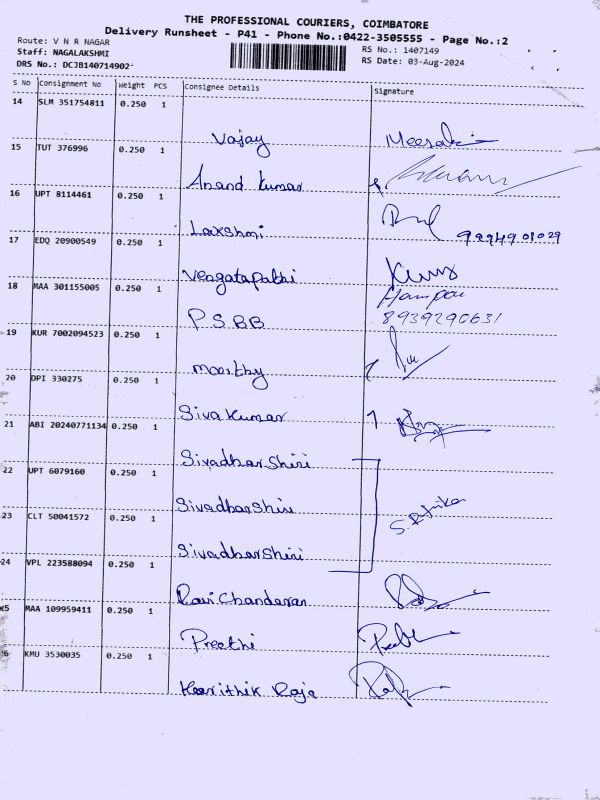 THE PROFESSIONAL COURIERS, COIMBATORE
Delivery Runsheet - P41 - Phone No.:0422-3505555 - Page No.:2
Route: V N R NAGAR
Staff: NAGALAKSHMI
DRS No.: DCJB140714902
RS No.: 1407149
RS Date: 03-Aug-2024
S No Consignment No Weight PCS Consignee Details Signature
14 SLM 351754811 0.250 1
Vajay
15 TUT 376996 0.250 1
Anand Kumar
16 UPT 8114461 0.250 1
Lakshmi 99949 01029
17 EDQ 20900549 0.250 1
Vengatapathi
18 MAA 301155005 0.250 1
P.S.B.B 8939296631
19 KUR 7002094523 0.250 1
moorthy
20 DPI 330275 0.250 1
Siva Kumar
21 ABI 20240771134 0.250 1
Sivadharshini
22 UPT 6079160 0.250 1
Sivadharshini
23 CLT 50041572 0.250 1
Sivadharshini
24 VPL 223588094 0.250 1
Ravi Chanderan
25 MAA 109959411 0.250 1
Preethi
26 KMU 3530035 0.250 1
Harithik Raja